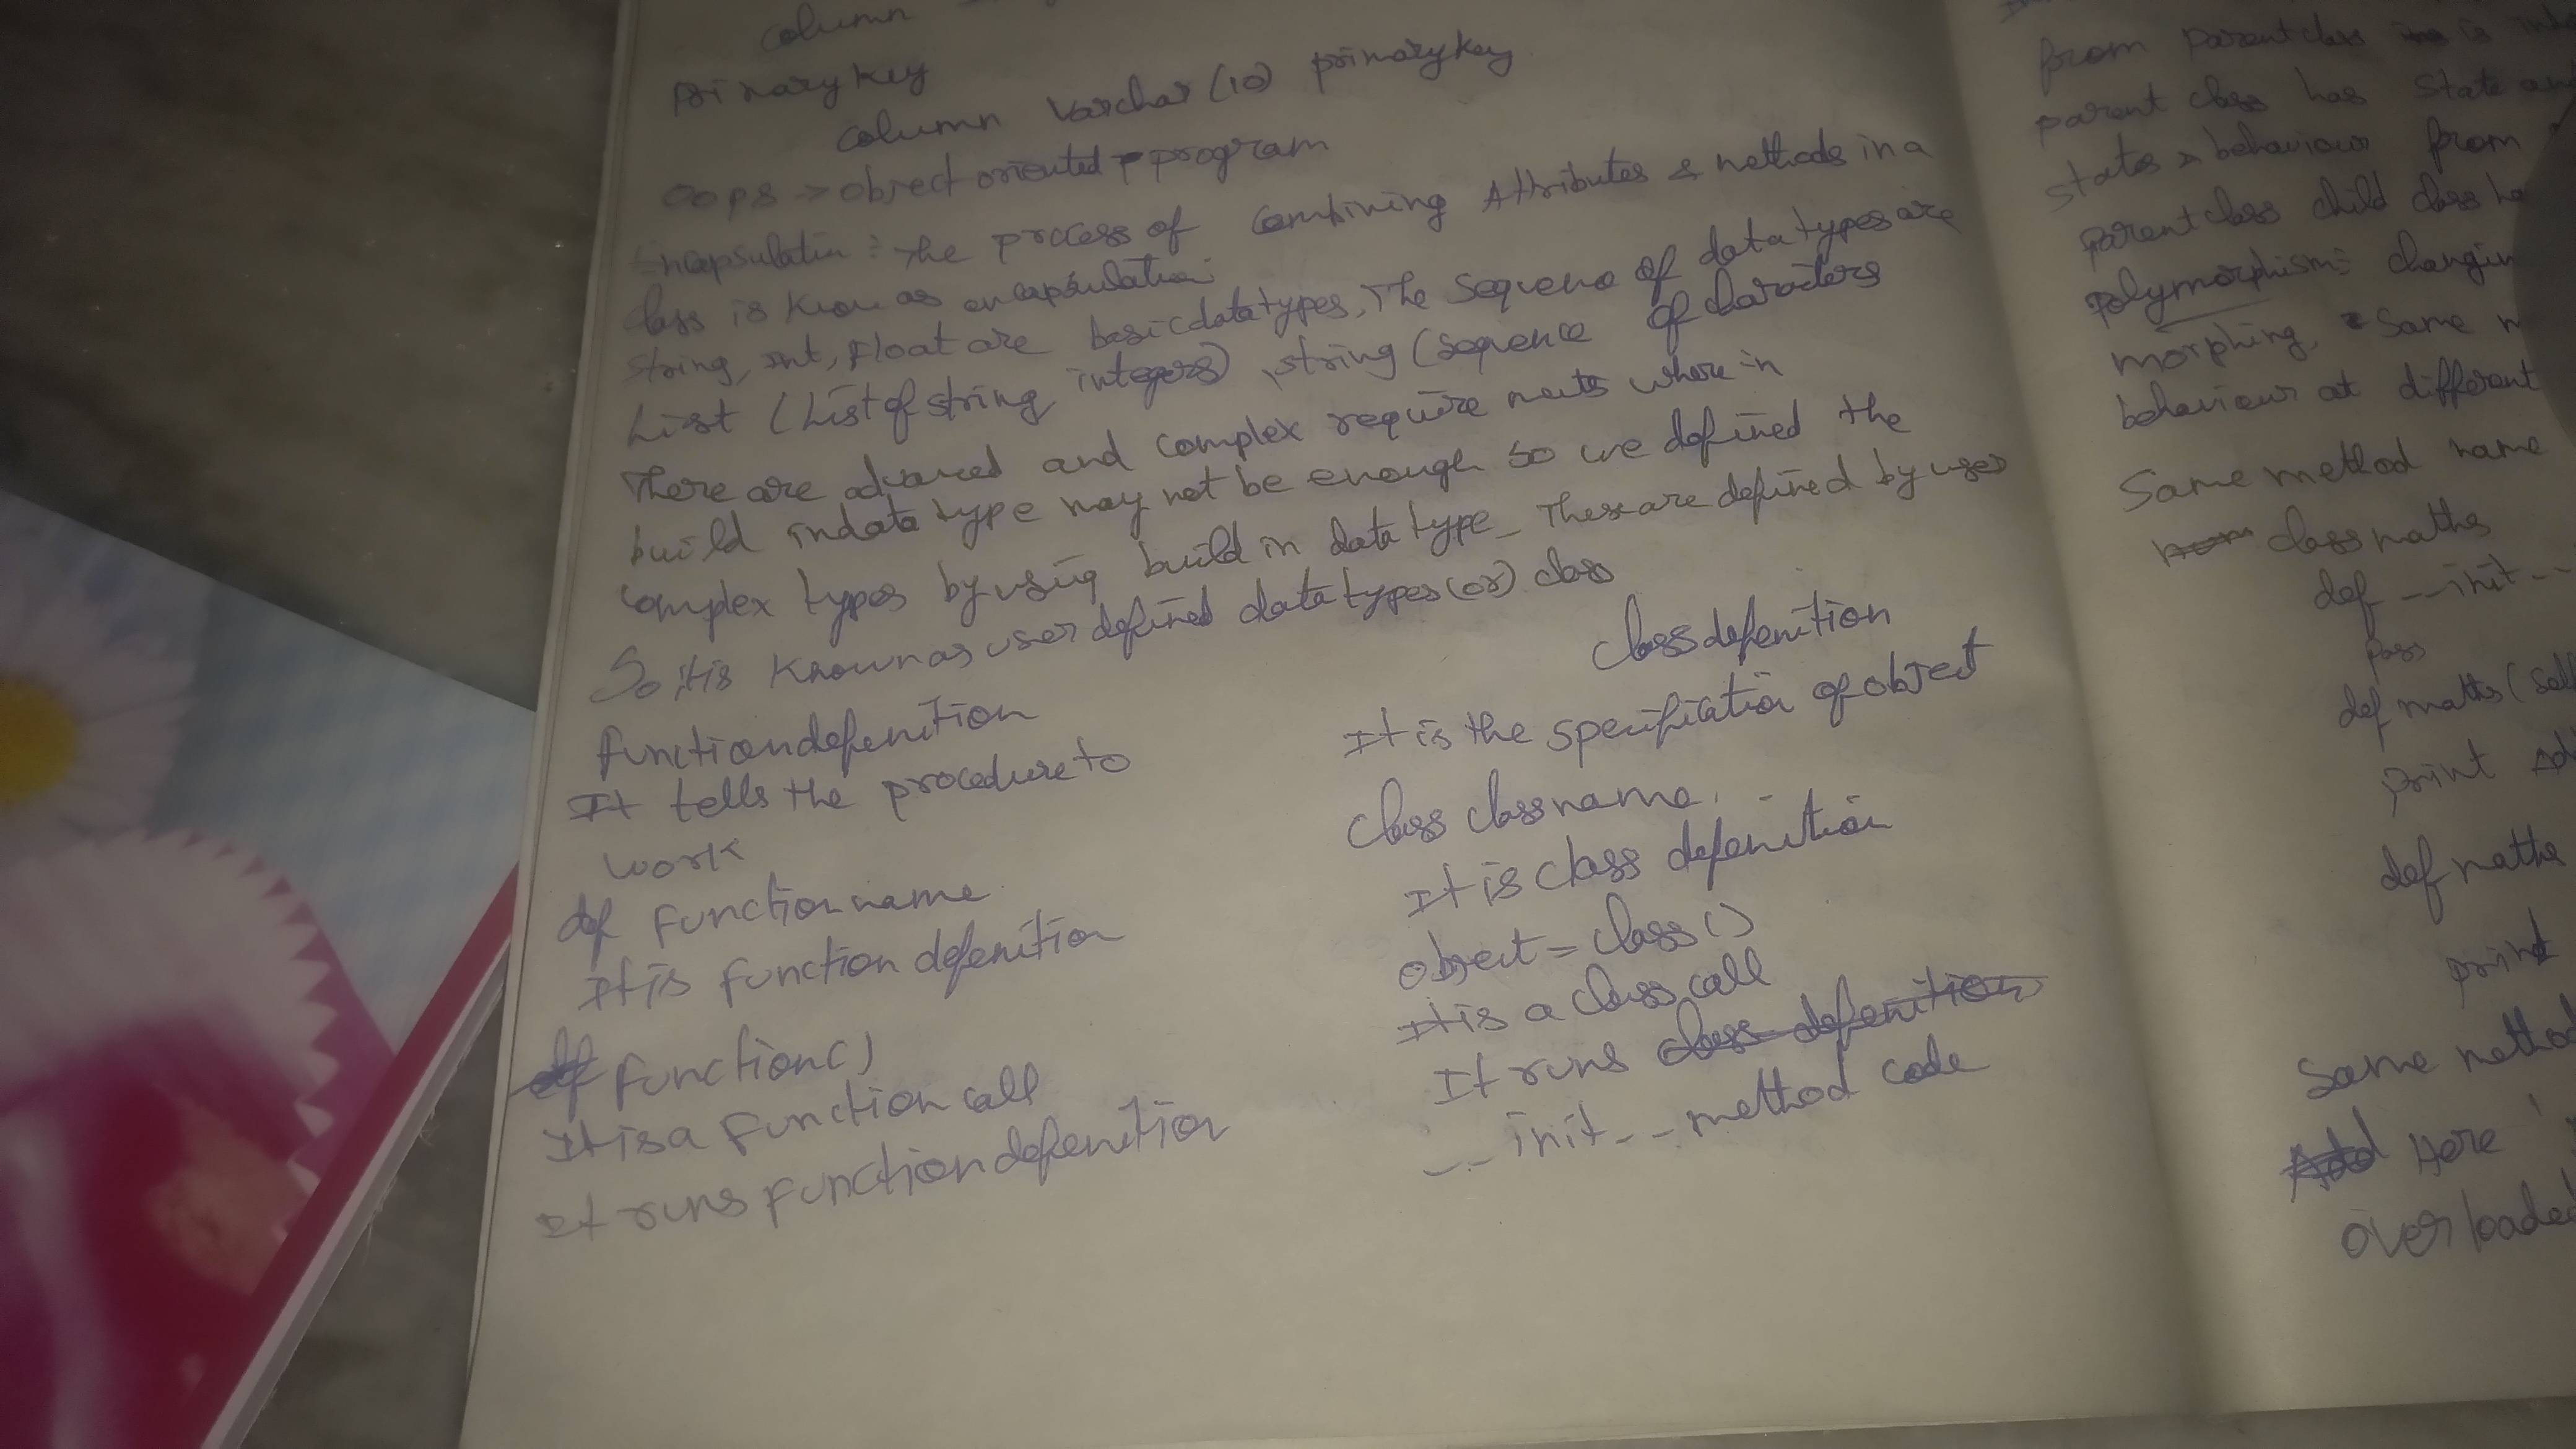 column
Primary key
column Varchar (10) primary key
Oops -> object oriented program
Encapsulation : The process of combining Attributes & methods in a
class is know as encapsulation
String, Int, Float are basic data types, The Sequence of data types are
List (List of string, integers), string (sequence of characters
There are advanced and complex require ments where in
build in data type may not be enough so we defined the
complex types by using build in data type_ These are defined by user
So, it is known as user defined data types (or) class
function defenition
It tells the procedure to
work
def function name
It is function defenition
function()
It is a function call
It runs function defenition
class defenition
It is the specification of object
class class name.
It is class defenition
object = class ()
It is a class call
It runs class defenition
__init__ method code
from parent class is
parent class has State
states > behaviour from
parent class child class
Polymorphism :
morphing, Same
behaviour at different
Same method name
class maths
def __init__
pass
def maths (
print
def maths
print
Same
Here
Overloaded